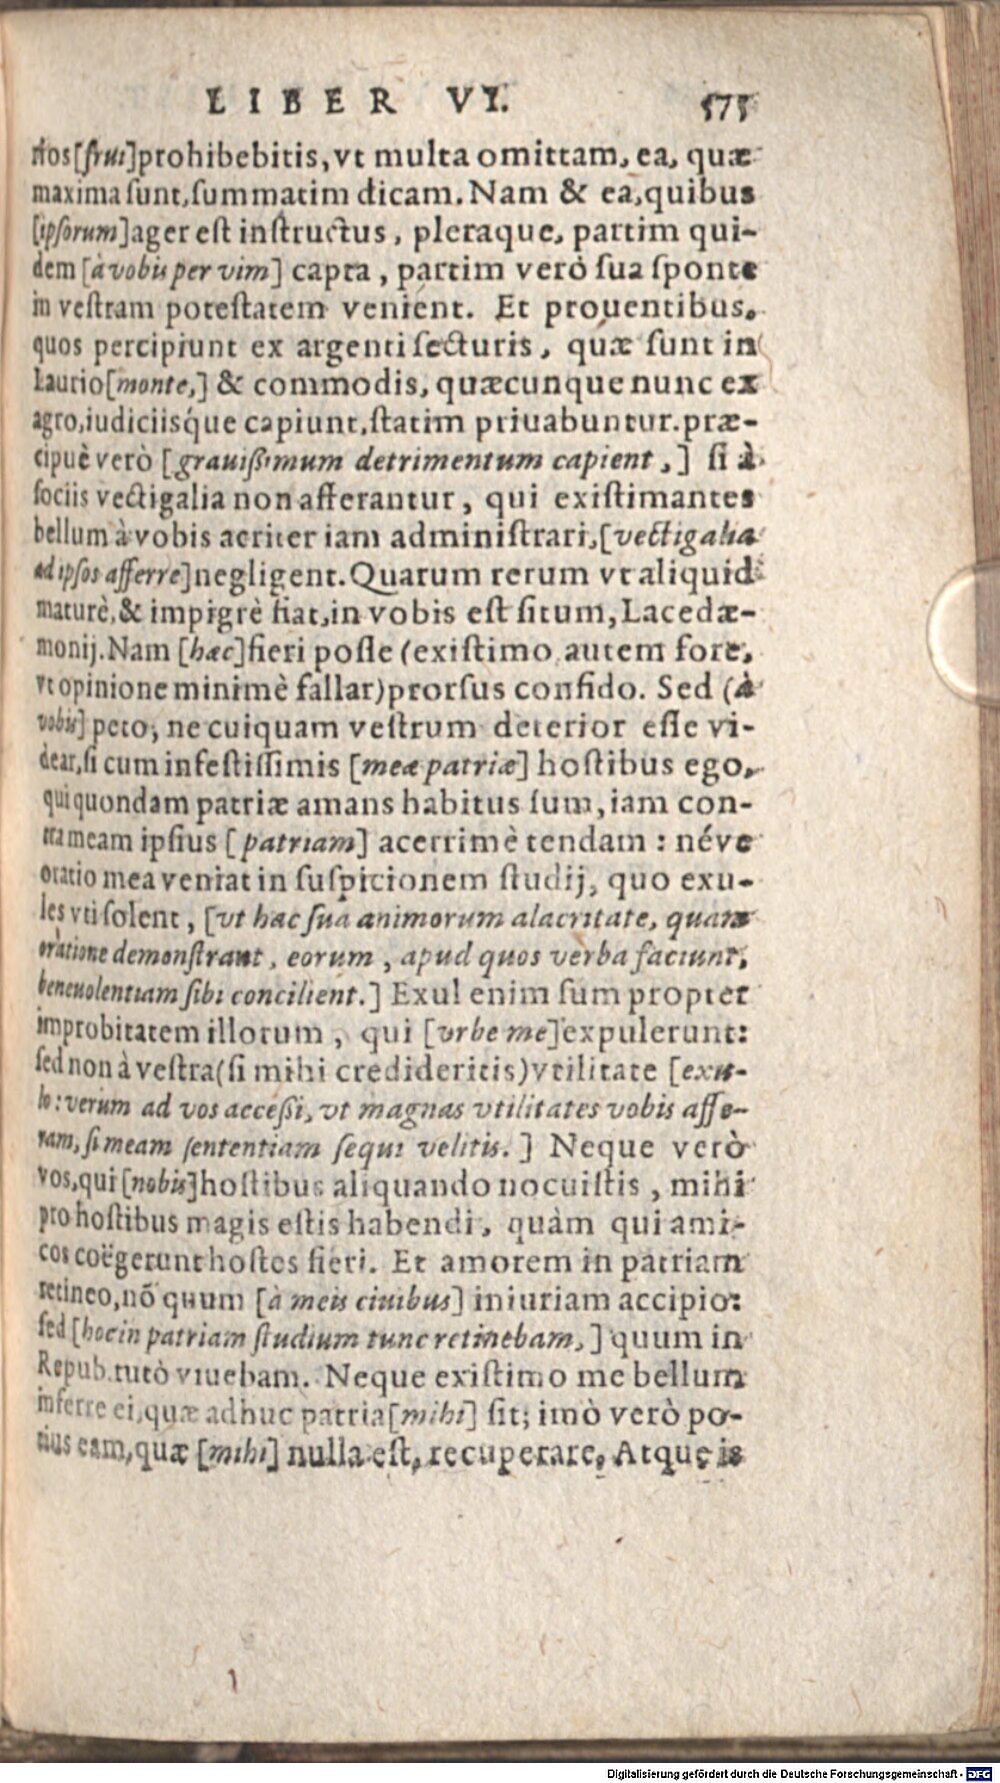 LIBER VI. 575
rios[frui]prohibebitis, vt multa omittam, ea, quæ
maxima sunt, summatim dicam. Nam & ea, quibus
[ipsorum]ager est instructus, pleraque, partim qui-
dem [à vobis per vim] capta, partim verò sua sponte
in vestram potestatem venient. Et prouentibus,
quos percipiunt ex argenti secturis, quæ sunt in
Laurio[monte,] & commodis, quæcunque nunc ex
agro, iudiciisq́ue capiunt, statim priuabuntur. præ-
cipuè verò [grauissimum detrimentum capient,] si à
sociis vectigalia non afferantur, qui existimantes
bellum à vobis acriter iam administrari, [vectigalia
ad ipsos afferre]negligent. Quarum rerum vt aliquid
maturè, & impigrè fiat, in vobis est situm, Lacedæ-
monij. Nam [hæc]fieri posse (existimo autem fore,
vt opinione minimè fallar)prorsus confido. Sed (à
vobis] peto, ne cuiquam vestrum deterior esse vi-
dear, si cum infestissimis [meæ patriæ] hostibus ego,
qui quondam patriæ amans habitus sum, iam con-
tra meam ipsius [patriam] acerrimè tendam : néve
oratio mea veniat in suspicionem studij, quo exu-
les vti solent, [vt hac sua animorum alacritate, quam
oratione demonstrant, eorum, apud quos verba faciunt,
beneuolentiam sibi concilient.] Exul enim sum propter
improbitatem illorum, qui [vrbe me]expulerunt:
sed non à vestra(si mihi credideritis)vtilitate [exu-
lo: verum ad vos accessi, vt magnas vtilitates vobis affe-
ram, si meam sententiam sequi velitis.] Neque verò
vos, qui [nobis]hostibus aliquando nocuistis, mihi
pro hostibus magis estis habendi, quàm qui ami-
cos coëgerunt hostes fieri. Et amorem in patriam
retineo, nō quum [à meis ciuibus] iniuriam accipio:
sed [hoc in patriam studium tunc retinebam,] quum in
Repub. tutò viuebam. Neque existimo me bellum
inferre ei, quæ adhuc patria[mihi] sit; imò verò po-
tius eam, quæ [mihi] nulla est, recuperare. Atque is
Digitalisierung gefördert durch die Deutsche Forschungsgemeinschaft - DFG